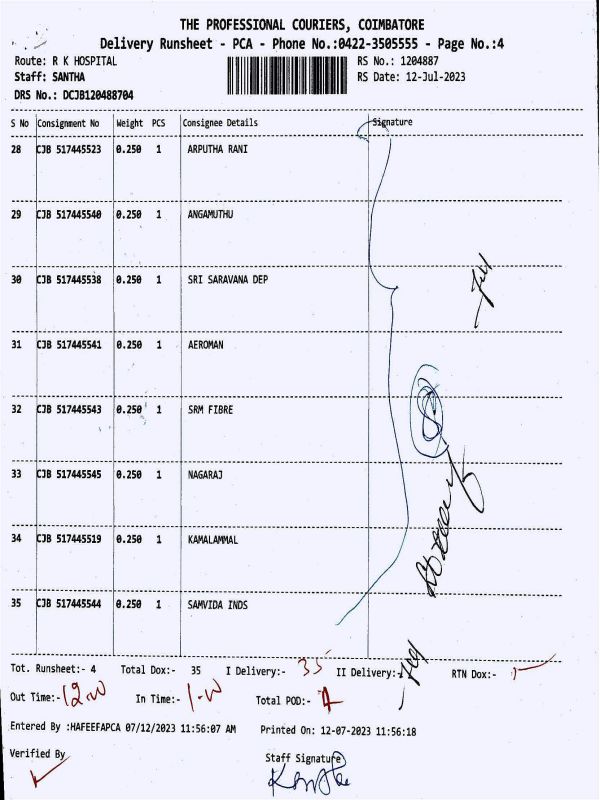 THE PROFESSIONAL COURIERS, COIMBATORE
Delivery Runsheet - PCA - Phone No.:0422-3505555 - Page No.:4
Route: R K HOSPITAL RS No.: 1204887
Staff: SANTHA RS Date: 12-Jul-2023
DRS No.: DCJB120488704
S No Consignment No Weight PCS Consignee Details Signature
28 CJB 517445523 0.250 1 ARPUTHA RANI
29 CJB 517445540 0.250 1 ANGAMUTHU
30 CJB 517445538 0.250 1 SRI SARAVANA DEP
31 CJB 517445541 0.250 1 AEROMAN
32 CJB 517445543 0.250 1 SRM FIBRE
33 CJB 517445545 0.250 1 NAGARAJ
34 CJB 517445519 0.250 1 KAMALAMMAL
35 CJB 517445544 0.250 1 SAMVIDA INDS
Tot. Runsheet:- 4 Total Dox:- 35 I Delivery:- 35 II Delivery:- RTN Dox:-
Out Time:- In Time:- Total POD:-
Entered By :HAFEEFAPCA 07/12/2023 11:56:07 AM Printed On: 12-07-2023 11:56:18
Verified By Staff Signature